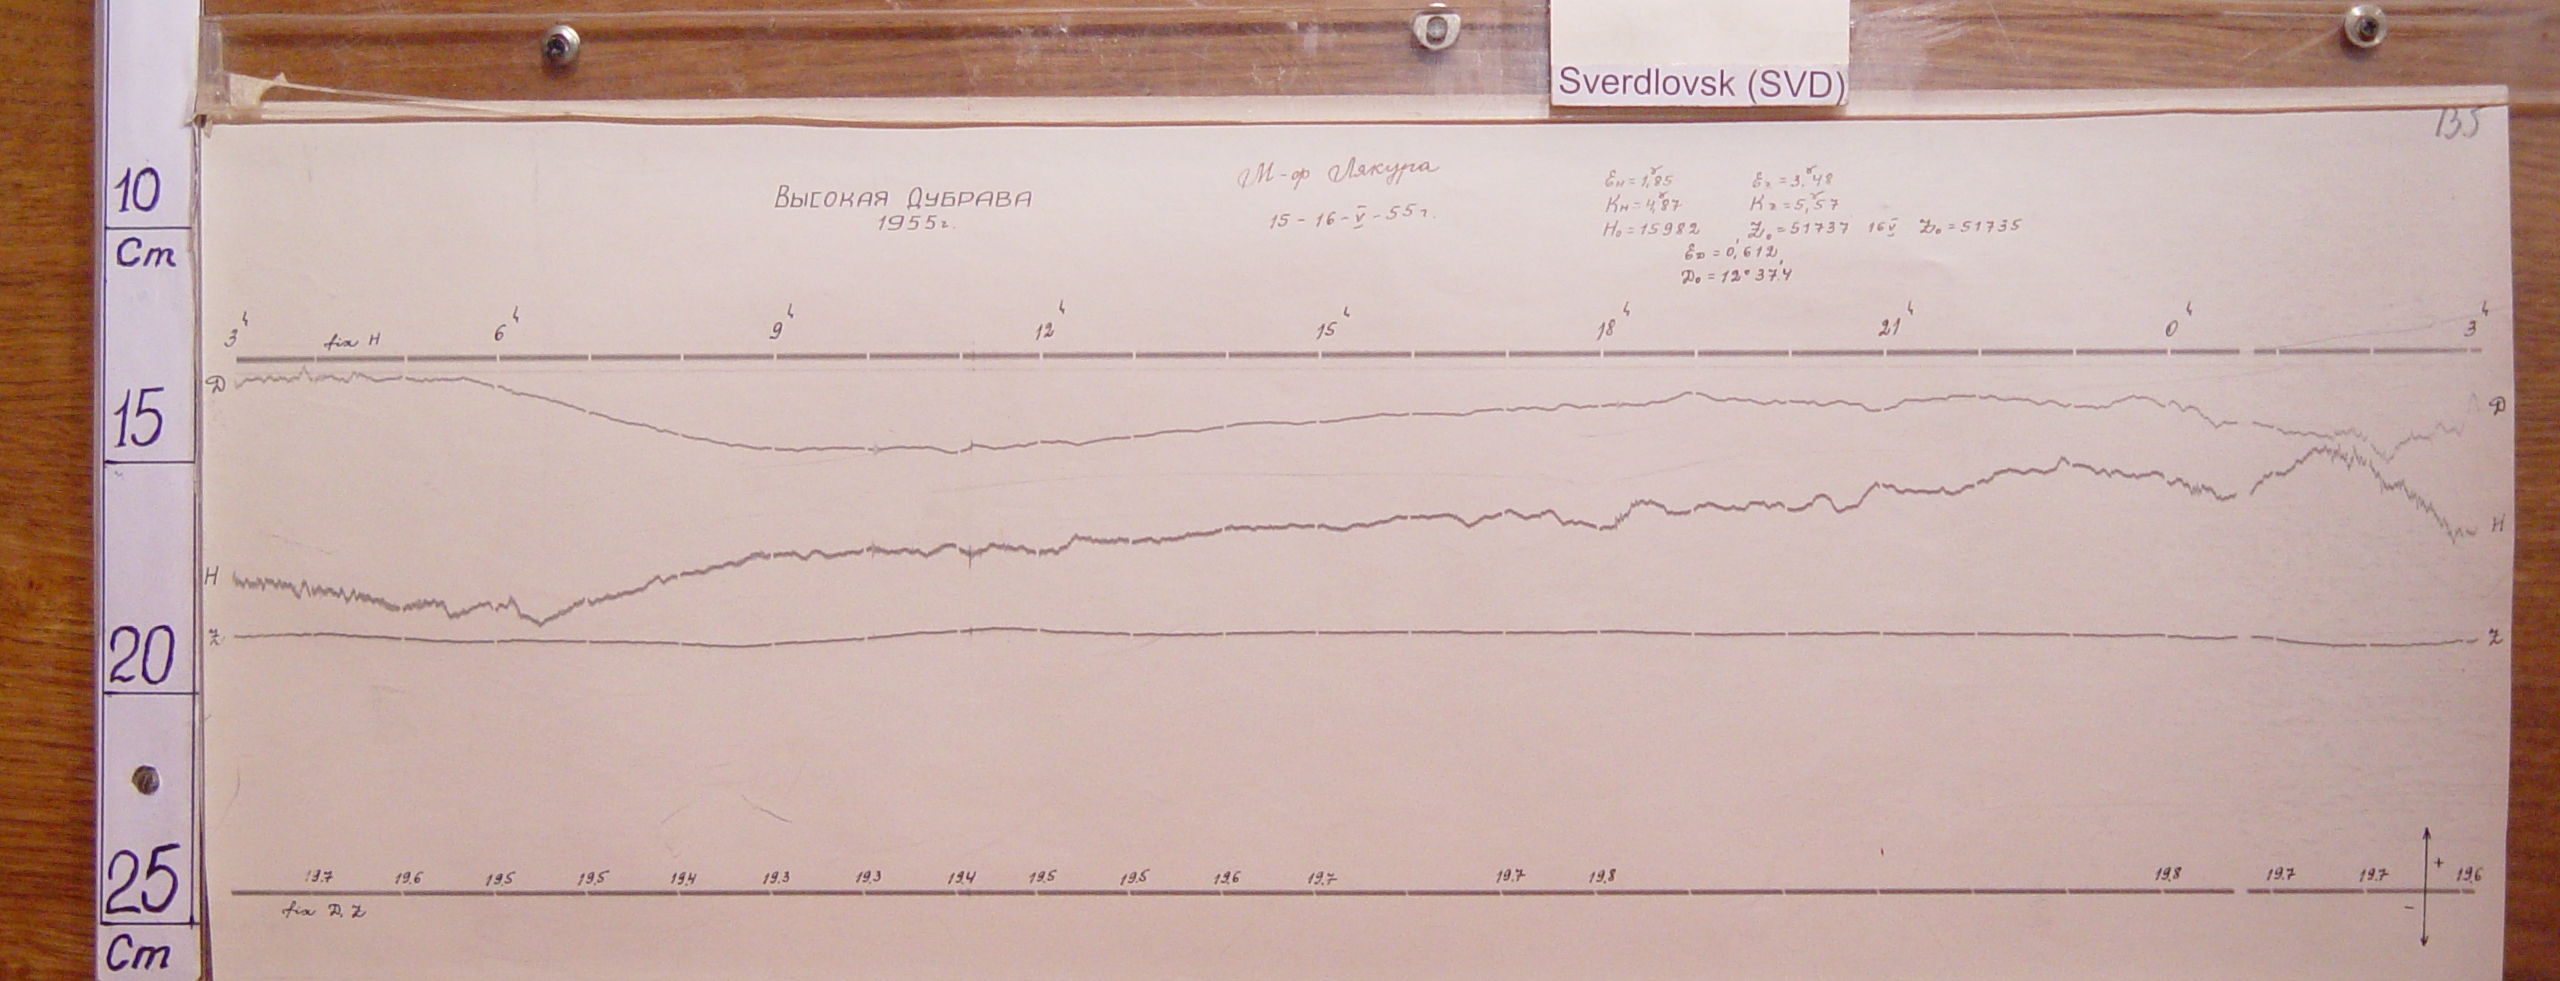 Sverdlovsk (SVD)
135
10
Cm
15
20
25
Cm
Высокая Дубрава
1955г.
М-ф Лякура
15-16-V-55г.
Ен=1,γ85 Ez=3,γ48
Кн=4,γ87 Kz=5,γ57
H₀=15982 Z₀=51737 16V Z₀=51735
ED=0,′612
D₀=12°37′.4
3ч 6ч 9ч 12ч 15ч 18ч 21ч 0ч 3ч
fix H
D D
H H
Z Z
19.7 19.6 19.5 19.5 19.4 19.3 19.3 19.4 19.5 19.5 19.6 19.7 19.7 19.8 19.8 19.7 19.7 19.6
fix D, Z
+
-